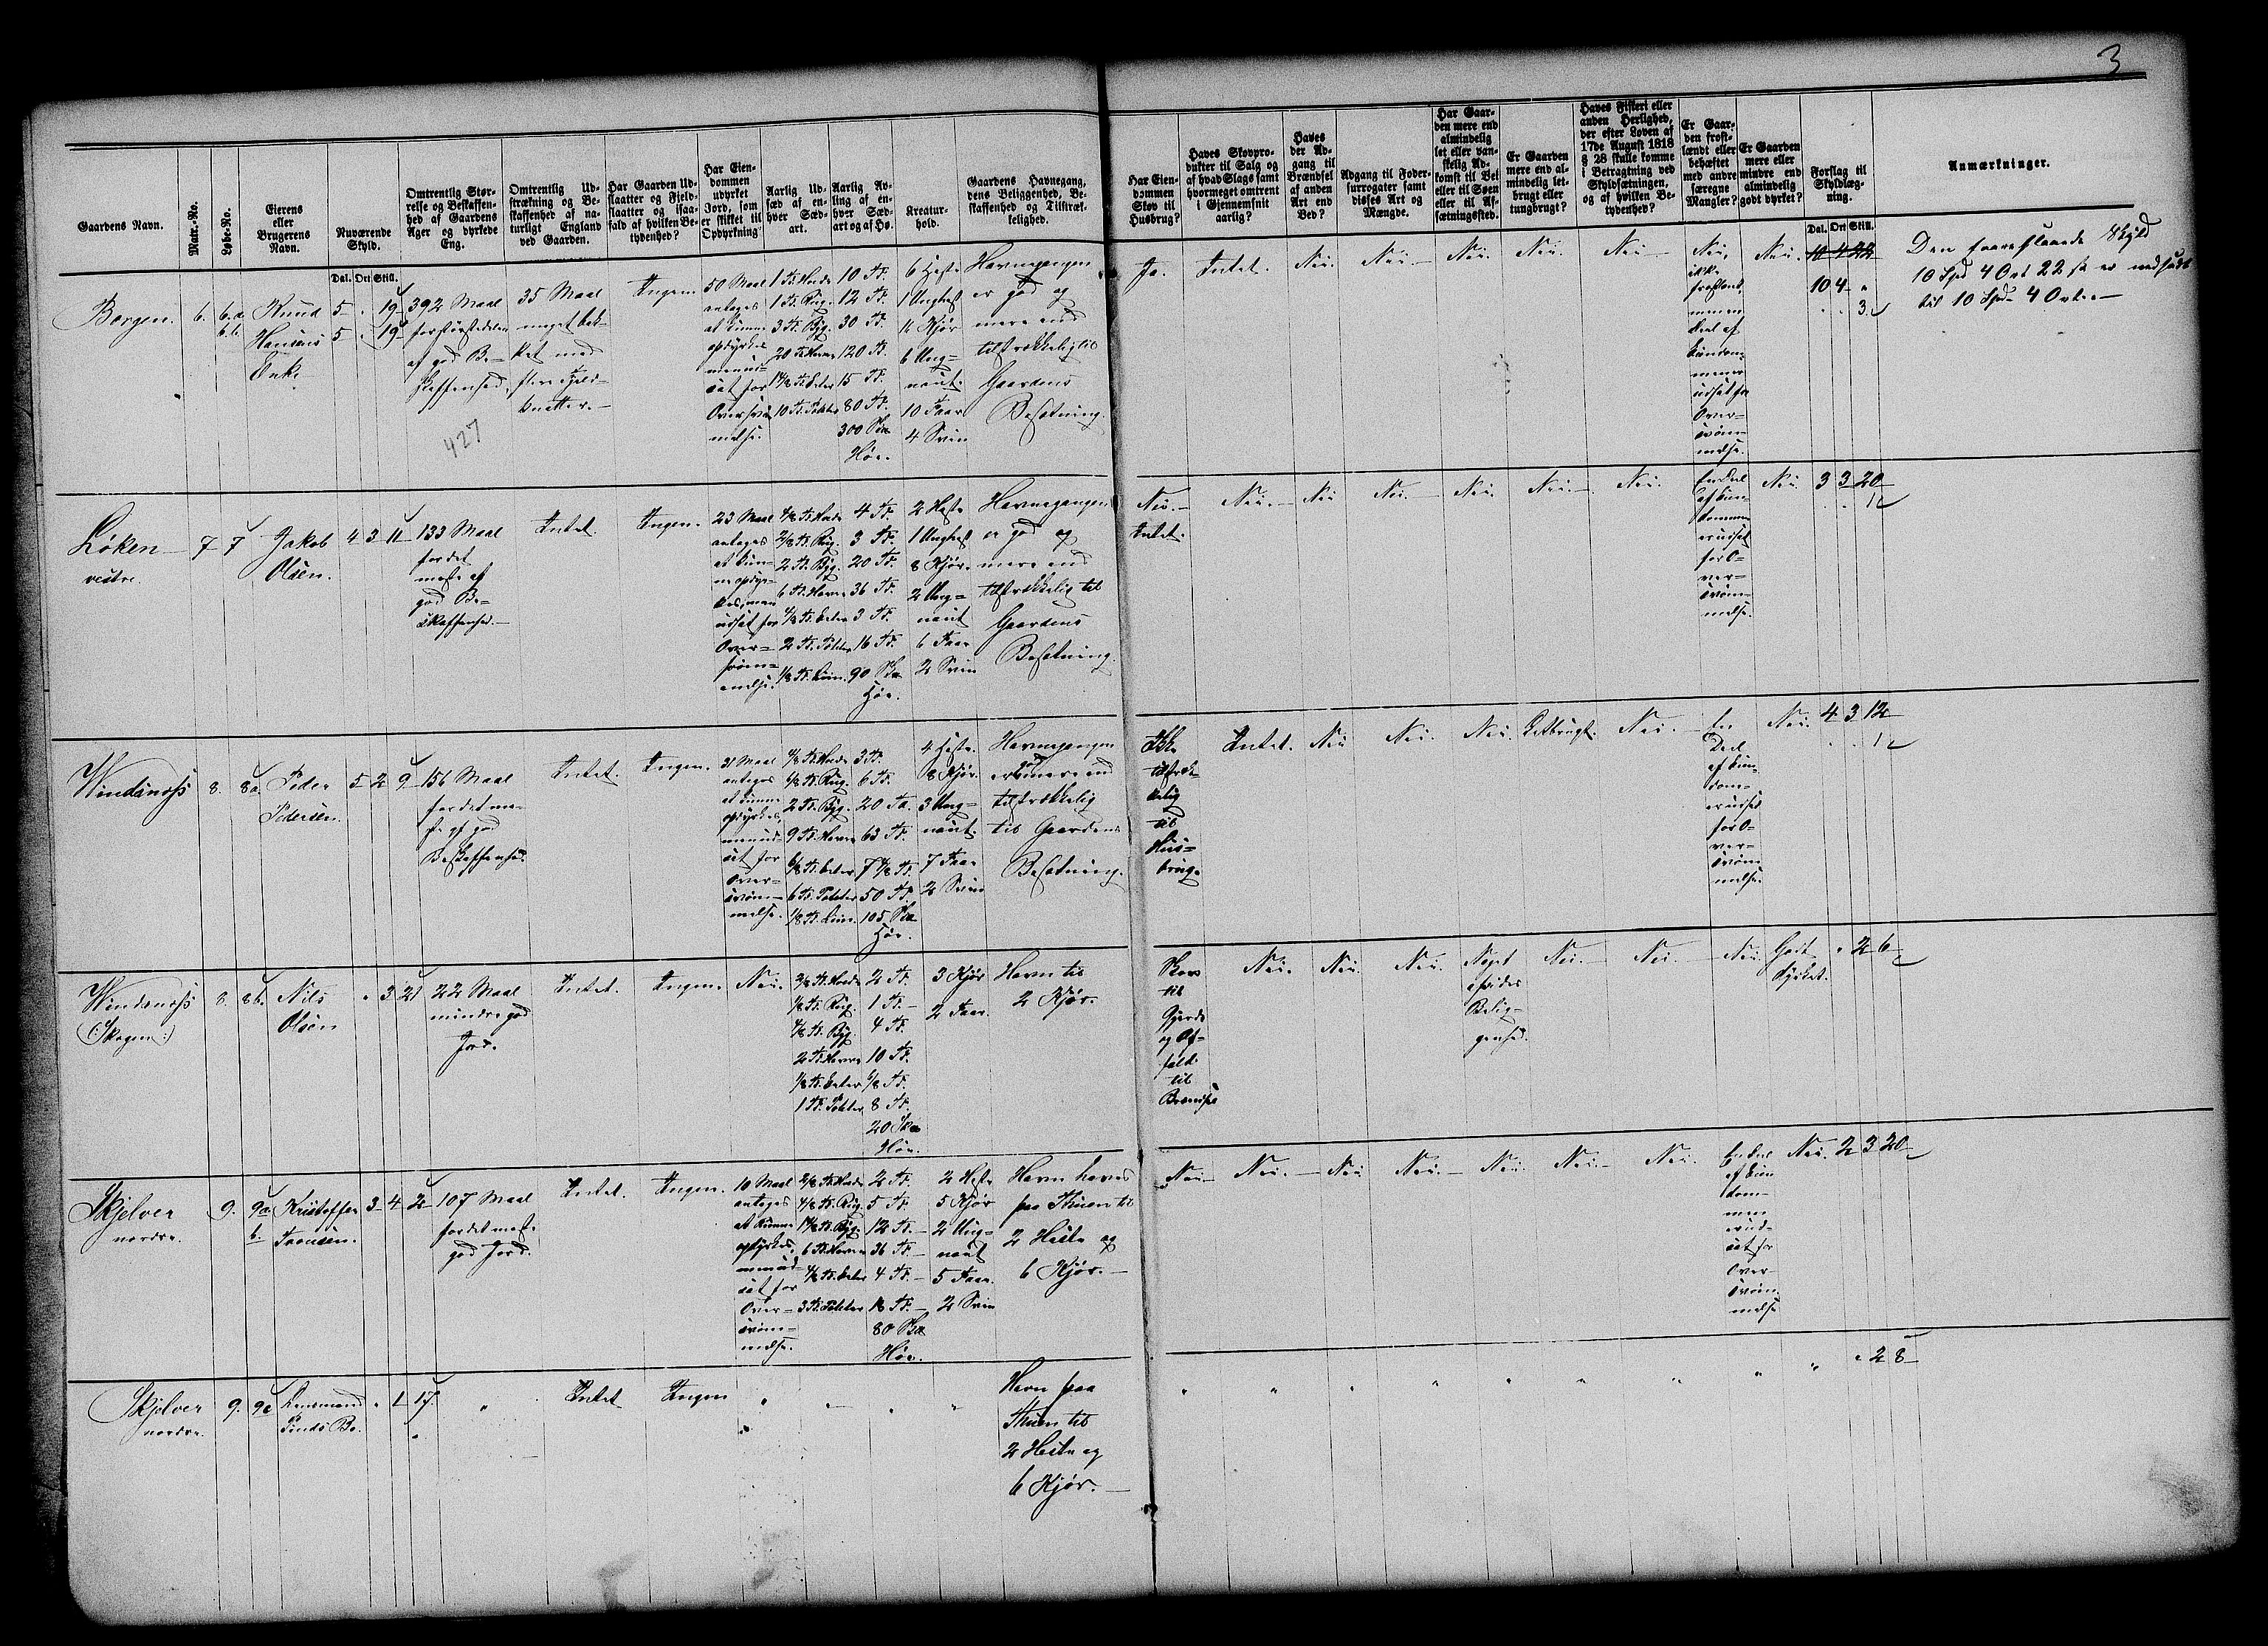 3
Gaardens Navn.
Matr.-No.
Løbe-No.
Eierens
eller
Brugerens
Navn.
Nuværende
Skyld.
Dal. Ort Skill.
Omtrentlig Stør-
relse og Beskaffen-
hed af Gaardens
Ager og dyrkede
Eng.
Omtrentlig Ud-
strækning og Be-
skaffenhed af na-
turligt England
ved Gaarden.
Har Gaarden Ud-
slaatter og Fjeld-
slaatter og isaa-
fald af hvilken Be-
tydenhed?
Har Eien-
dommen
udyrket
Jord, som
er skikket til
Opdyrkning
Aarlig Ud-
sæd af en-
hver Sæd-
art.
Aarlig Av-
ling af en-
hver Sæd-
art og af Hø.
Kreatur-
hold.
Gaardens Havnegang,
dens Beliggenhed, Be-
skaffenhed og Tilstræk-
kelighed.
Har Eien-
dommen
Skov til
Husbrug?
Haves Skovpro-
dukter til Salg og
af hvad Slags samt
hvormeget omtrent
i Gjennemsnit
aarlig?
Haves
der Ad-
gang til
Brændsel
af anden
Art end
Ved?
Adgang til Foder-
surrogater samt
disses Art og
Mængde.
Har Gaar-
den mere end
almindelig
let eller van-
skelig Ad-
komst til Vei
eller til Søen
eller til Af-
sætningssted.
Er Gaarden
mere end al-
mindelig let-
brugt eller
tungbrugt?
Haves Fiskeri eller
anden Herlighed,
der efter Loven af
17de August 1818
§ 28 skulle komme
i Betragtning ved
Skyldsætningen,
og af hvilken Be-
tydenhed?
Er Gaar-
den frost-
lændt eller
behæftet
med andre
særegne
Mangler?
Er Gaarden
mere eller
mindre end
almindelig
godt dyrket?
Forslag til
Skyldlæg-
ning.
Dal. Ort Skill.
Anmærkninger.
Borgen.
6.
6.a
6.b.
Knud
Hansens
Enke
5 " 19
5 " 19
392 Maal
for størstedelen
af god Be-
skaffenhed.
427
35 Maal
meget bak-
ket med
flere Fjeld-
knatter.
Ingen
50 Maal
antages
at kunne
opdyrkes
men ud-
sat for
Oversvøm-
melse.
1 Td. Hvede
1 Td. Rug.
3 Td. Byg.
20 Td. Havre
1 4/8 Td. Erter
10 Td. Poteter
10 Td.
12 Td.
30 Td.
120 Td.
15 Td.
80 Td.
300 Skp
Høe.
6 Heste
1 Unghest
14 Kjør
6 Ung-
naut.
10 Faar
4 Svin
Havnegangen
er god og
mere end
tilstrækkelig til
Gaardens
Besætning.
Ja.
Intet.
Nei.
Nei.
Nei.
Nei.
Nei
Nei,
ikke
frostlændt,
men en
Deel af
Eiendom-
men er
udsat for
Over-
svøm-
melse.
Nei.
10 4 22
10 4 "
" " 3
Den foreslaaede Skyld
10 Spd 4 Ort 22 sk er nedsat
til 10 Spd. 4 Ort.
Løken
vestre.
7
7
Jakob
Olsen.
4 3 11
133 Maal
for det
meste af
god Be-
skaffenhed.
Intet.
Ingen.
23 Maal
antages
at kun-
ne opdyr-
kes, men
udsat for
Over-
svøm-
melse.
4/8 Td. Hvede
2/8 Td. Rug.
2 Td. Byg.
6 Td. Havre
4/8 Td. Erter
2 Td. Poteter
1/8 Td. Liin.
4 Td.
3 Td.
20 Td.
36 Td.
3 Td.
16 Td.
90 Skp
Høe.
2 Heste
1 Unghest
8 Kjør.
2 Ung-
naut
6 Faar
2 Svin
Havnegangen
er god og
mere end
tilstrækkelig til
Gaardens
Besætning.
Nei.
Intet.
Nei.
Nei
Nei
Nei.
Nei.
Nei.
En Deel
af Eien-
dommen
er udsat
for O-
ver-
svøm-
melse.
Nei.
3 3 20
" " 1
Windunæss
8.
8a.
Peder
Pedersen.
5 2 9
156 Maal
for det me-
ste af god
Beskaffenhed.
Intet.
Ingen.
31 Maal
antages
at kunne
opdyrkes,
men ud-
sat for
Over-
svøm-
melse.
4/8 Td. Hvede
4/8 Td. Rug.
2 Td. Byg.
9 Td. Havre
6/8 Td. Erter
6 Td. Poteter
1/8 Td. Liin.
3 Td.
6 Td.
20 Td.
63 Td.
7 4/8 Td.
50 Td.
105 Skp
Høe.
4 Heste.
8 Kjør.
3 Ung-
naut.
7 Faar
2 Svin
Havnegangen
er god mere end
tilstrækkelig
til Gaardens
Besætning.
Ikke
tilstræk-
kelig
til
Hus-
brug.
Intet.
Nei
Nei.
Nei.
Letbrugt.
Nei.
En
Deel
af Eien-
dom-
er udsat
for O-
ver-
svøm-
melse.
Nei.
4 3 12
" " 1
Windunæss
(:Skogen:)
8.
8b.
Nils
Olsen
" 3 21
22 Maal
mindre god
Jord.
Intet.
Ingen.
Nei.
2/8 Td. Hvede
1/8 Td. Rug.
4/8 Td. Byg.
2 Td. Havre
1/8 Td. Erter
1 Td. Poteter
2 Td.
1 Td.
4 Td.
10 Td.
6/8 Td.
8 Td.
20 Skp
Høe.
3 Kjør
2 Faar.
Havn til
2 Kjør.
Skov
til
Gjerde
og Af-
fald
til
Brændsel
Nei.
Nei.
Nei.
Noget
afsides
Belig-
genhed.
Nei.
Nei
Nei.
Godt
dyrket.
" 2 6
Skjelver
nordre.
9.
9a
b.
Kristoffer
Fransen.
3 4 2
107 Maal
for det meste
god Jord.
Intet.
Ingen.
10 Maal
antages
at kunne
opdyrkes,
men ud-
sat for
Over-
svøm-
melse.
2/8 Td. Hvede
4/8 Td. Rug
1 4/8 Td. Byg.
6 Td. Havre
4/8 Td. Erter
3 Td. Poteter
2 Td.
5 Td.
12 Td.
36 Td.
4 Td.
18 Td.
80 Skp
Høe.
2 Heste
5 Kjør
2 Ung-
naut
5 Faar.
2 Svin
Havn haves
paa Thuen til
2 Heste og
6 Kjør.
Nei
Nei.
Nei
Nei.
Nei
Nei.
Nei.
En Deel
af Eien
dom-
men
er ud-
sat for
Over-
svøm-
melse
Nei.
2 3 20
Skjelver
nordre.
9.
9c
" 1 17
"
Intet
Ingen
"
Havn paa
Thuen til
2 Heste og
6 Kjør.
" 2 8